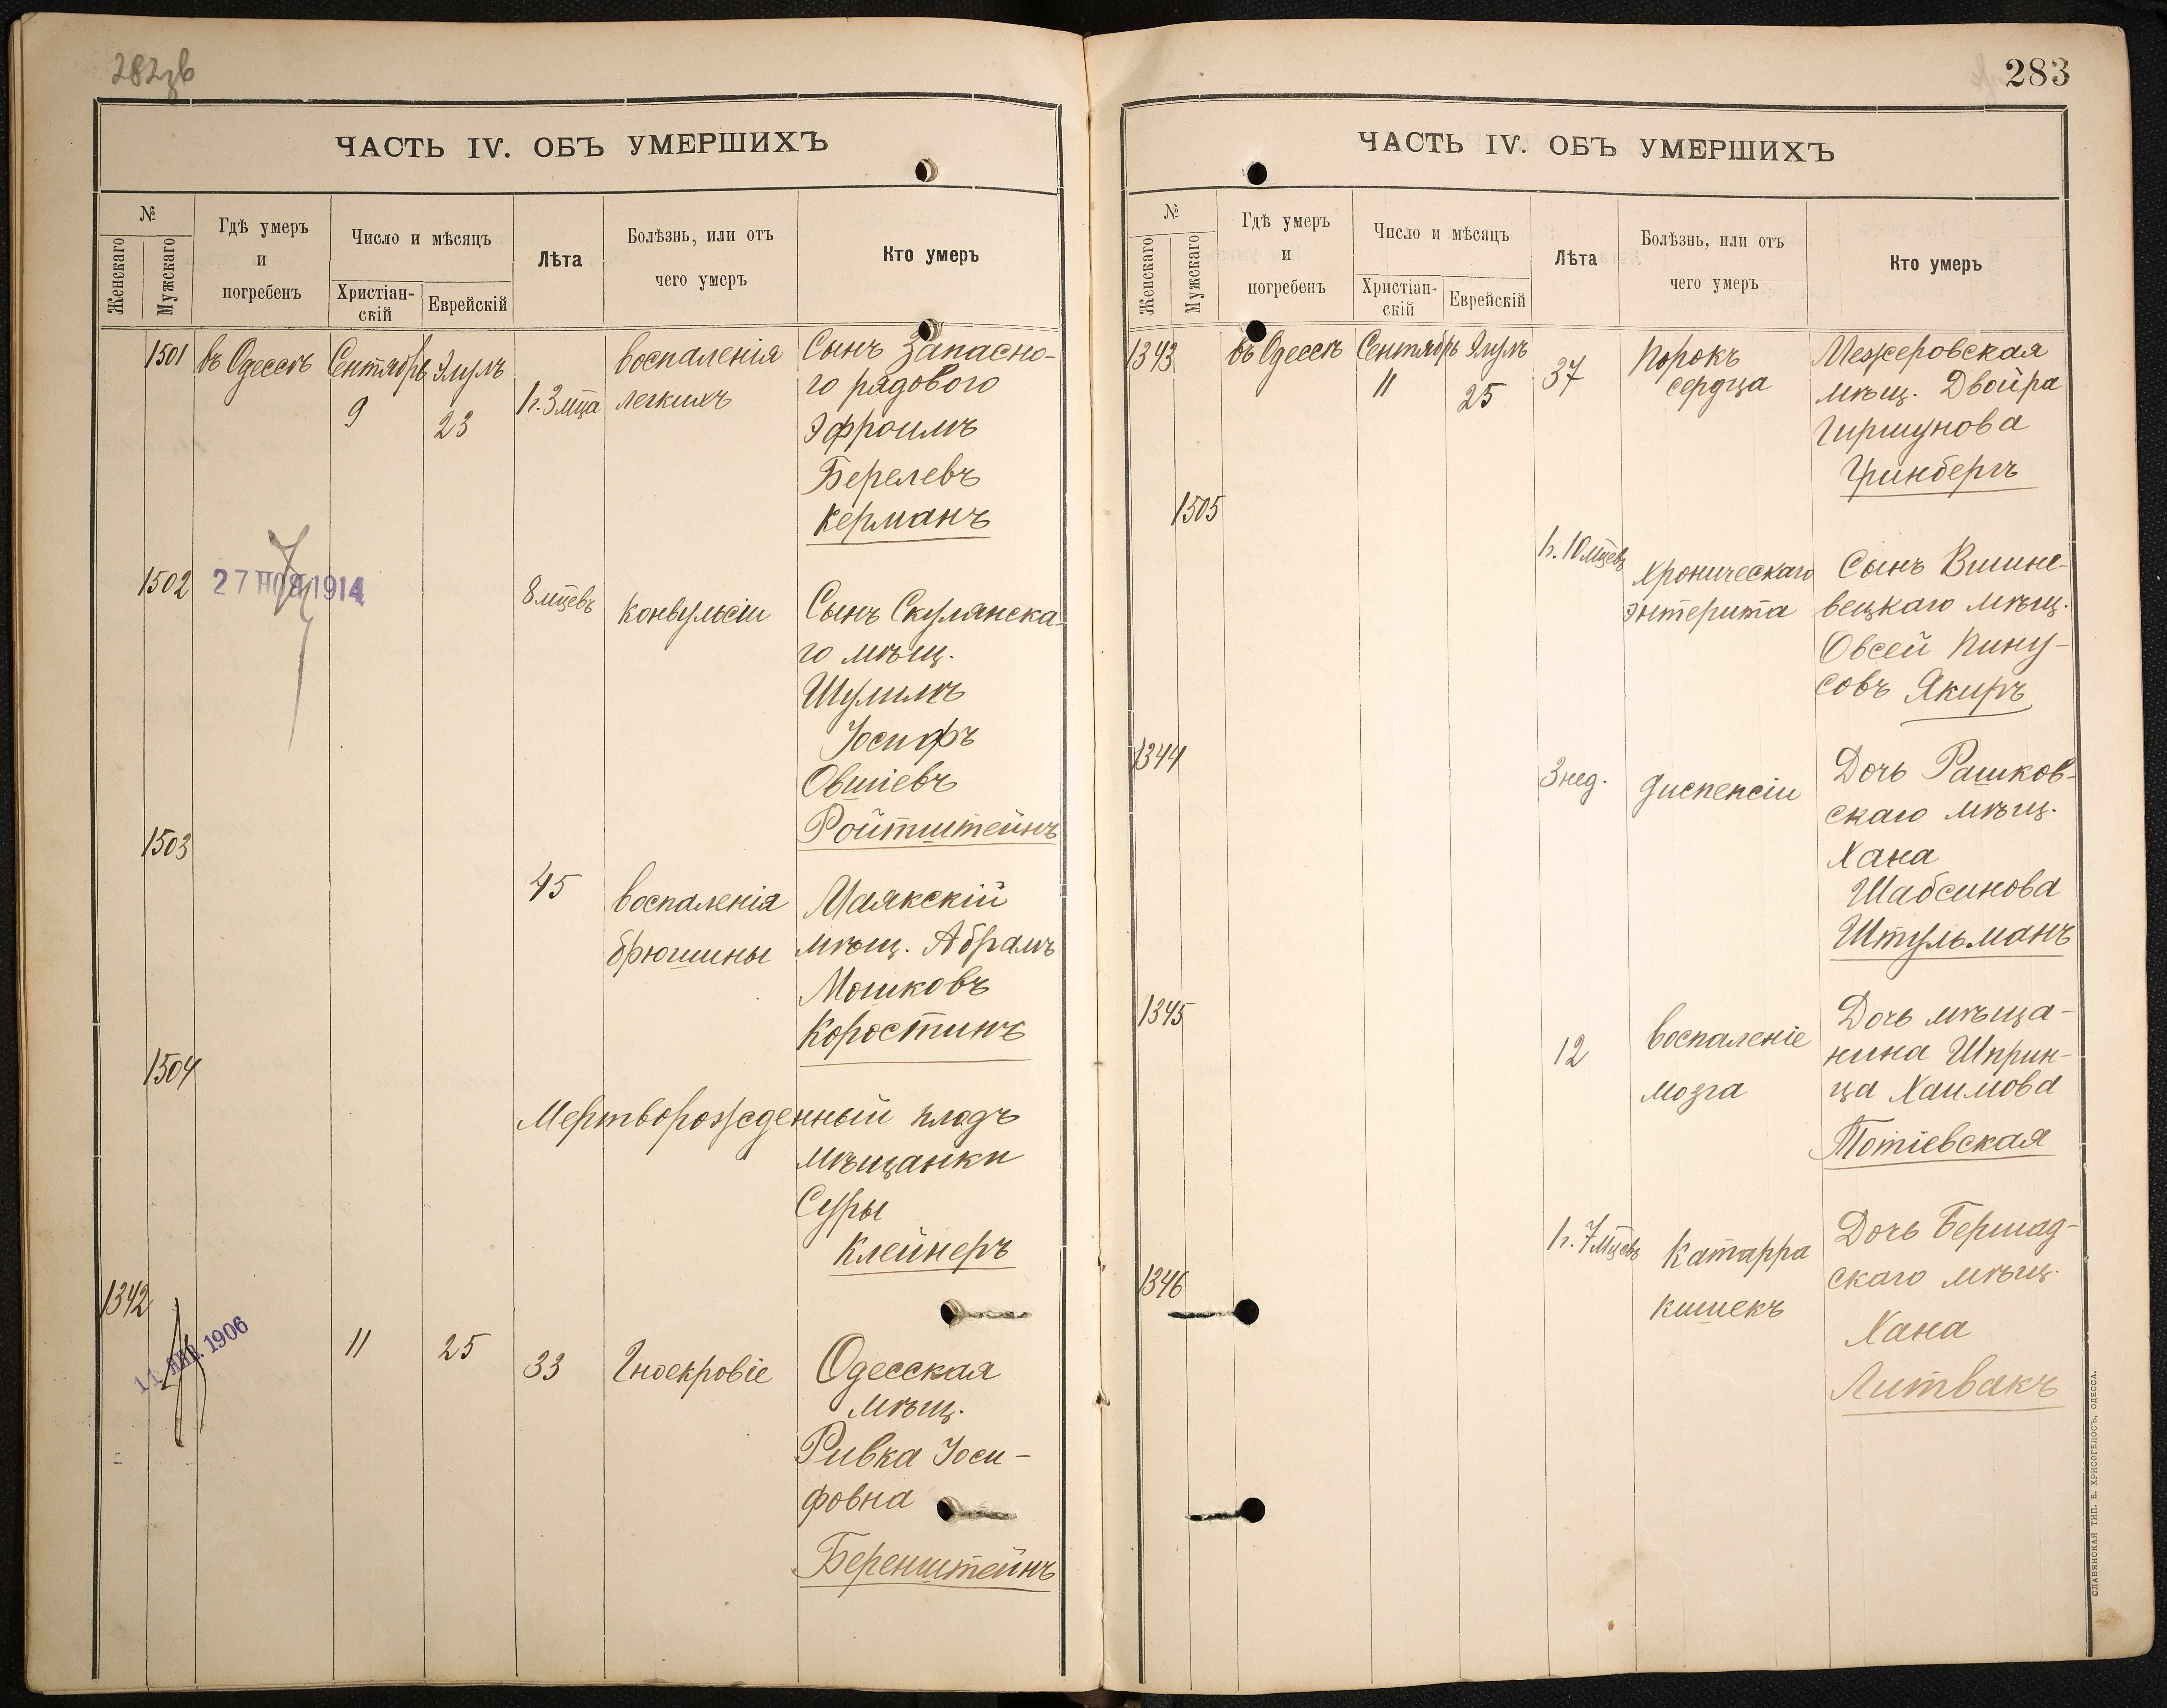 282зв
ЧАСТЬ IV. ОБЪ УМЕРШИХЪ
№
Женскаго
Мужскаго
Гдѣ умеръ
и
погребенъ
Число и мѣсяцъ
Христіан-
скій
Еврейскій
Лѣта
Болѣзнь, или отъ
чего умеръ
Кто умеръ
1501 въ Одессѣ Сентябрь Элулъ воспаленія Сынъ Запасно-
9 23 1г. 3 мца легкихъ го рядового
Эфроимъ
Берелевъ
Керманъ
1502 27 НОЯ 1914 8 мцевъ Конвульсіи Сынъ Скулянска-
го мѣщ.
Шулимъ
Іосифъ
Овшіевъ
Ройтштейнъ
1503
45 воспаленія Маякскій
брюшины мѣщ. Абрамъ
Мошковъ
Коростинъ
1504
Мертворожденный плодъ
мѣщанки
Суры
Клейнеръ
1342
11 ЯНВ. 1906
11 25 33 Гноекровіе Одесская
мѣщ.
Ривка Іоси-
фовна
Беренштейнъ
283
ЧАСТЬ IV. ОБЪ УМЕРШИХЪ
№
Женскаго
Мужскаго
Гдѣ умеръ
и
погребенъ
Число и мѣсяцъ
Христіан-
скій
Еврейскій
Лѣта
Болѣзнь, или отъ
чего умеръ
Кто умеръ
1343 въ Одессѣ Сентябрь Элулъ Порокъ Межеровская
11 25 37 сердца мѣщ. Двойра
Гиршунова
Гринбергъ
1505
1г. 10 мцевъ Хроническаго Сынъ Вишне-
энтерита вецкаго мѣщ.
Овсей Пину-
совъ Якиръ
1344
3 нед. Диспепсіи Дочь Рашков-
скаго мѣщ.
Хана
Шабсинова
Штульманъ
1345
12 воспаленіе Дочь мѣща-
мозга нина Шприн-
ца Хаимова
Потіевская
1346
1г. 7 мцевъ Катарра Дочь Бершад-
кишекъ скаго мѣщ.
Хана
Литвакъ
СЛАВЯНСКАЯ ТИП. Е. ХРИСОГЕЛОСЪ, ОДЕССА.